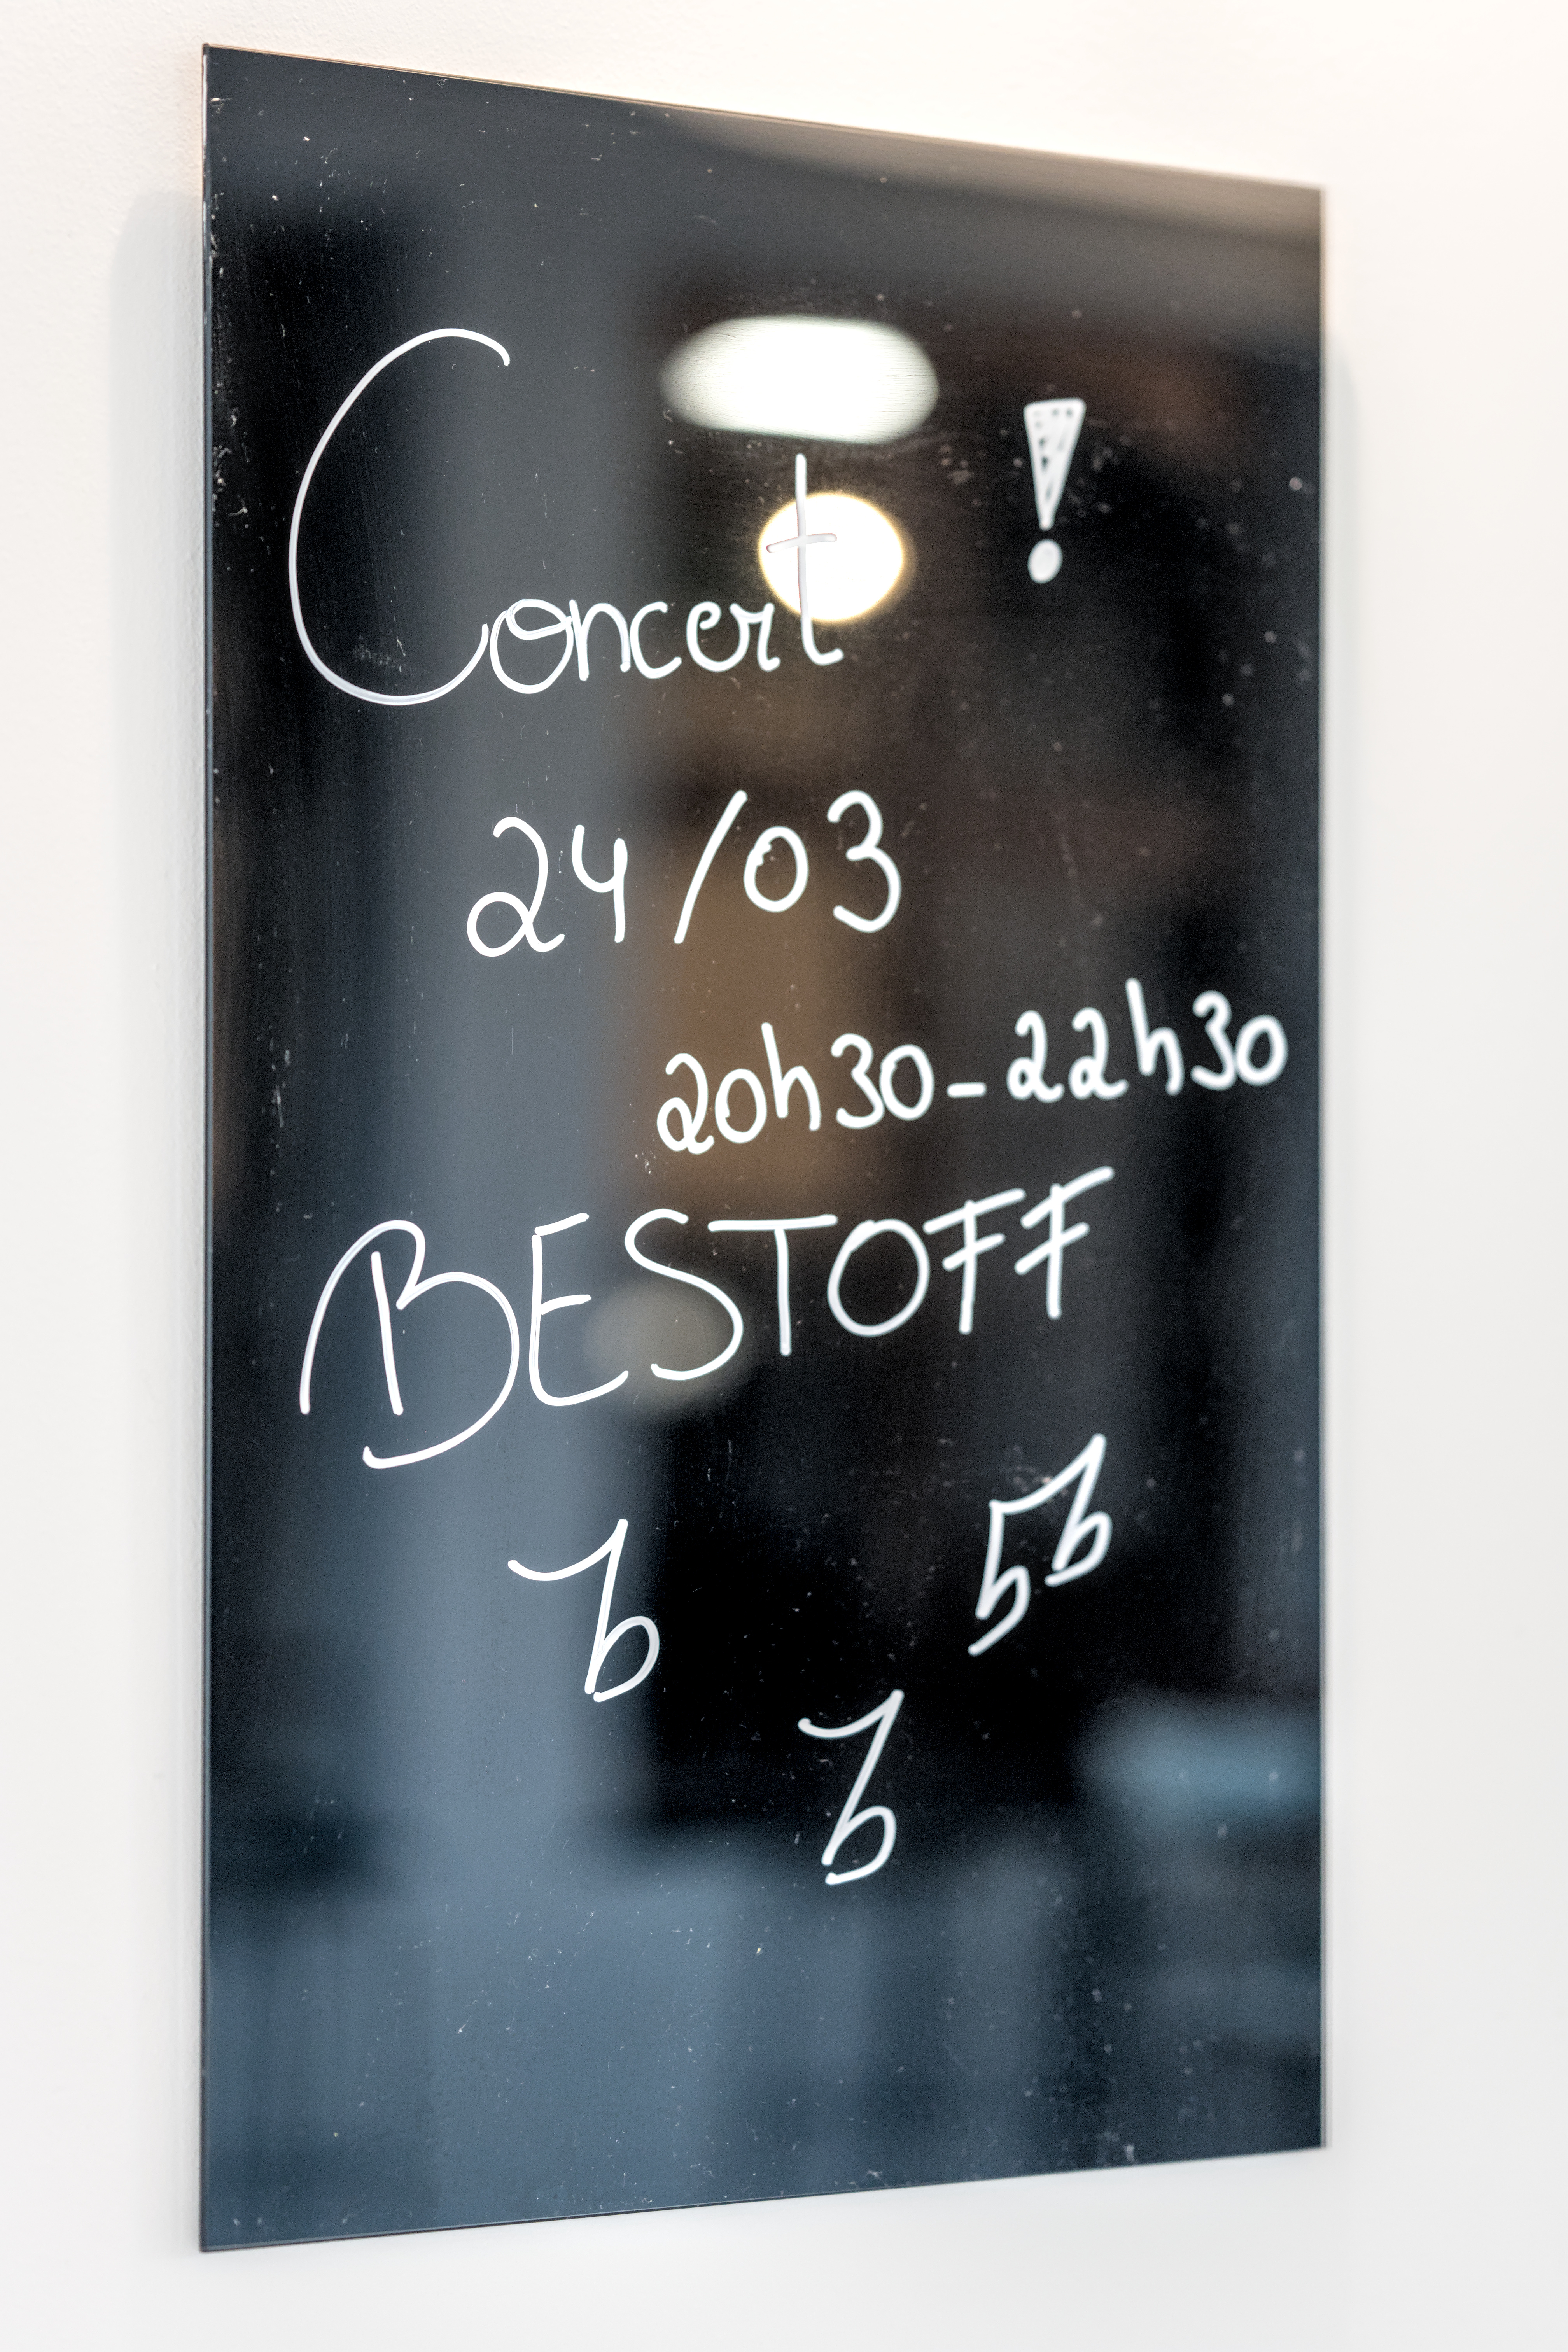 Concert !
24/03
20h30-22h30
BESTOFF